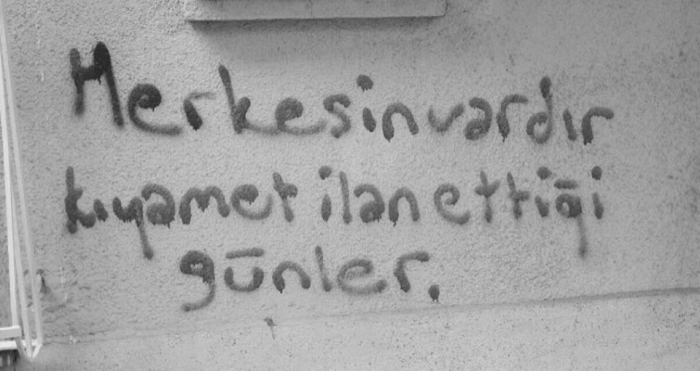 Herkesin vardır
kıyamet ilan ettiği
günler.